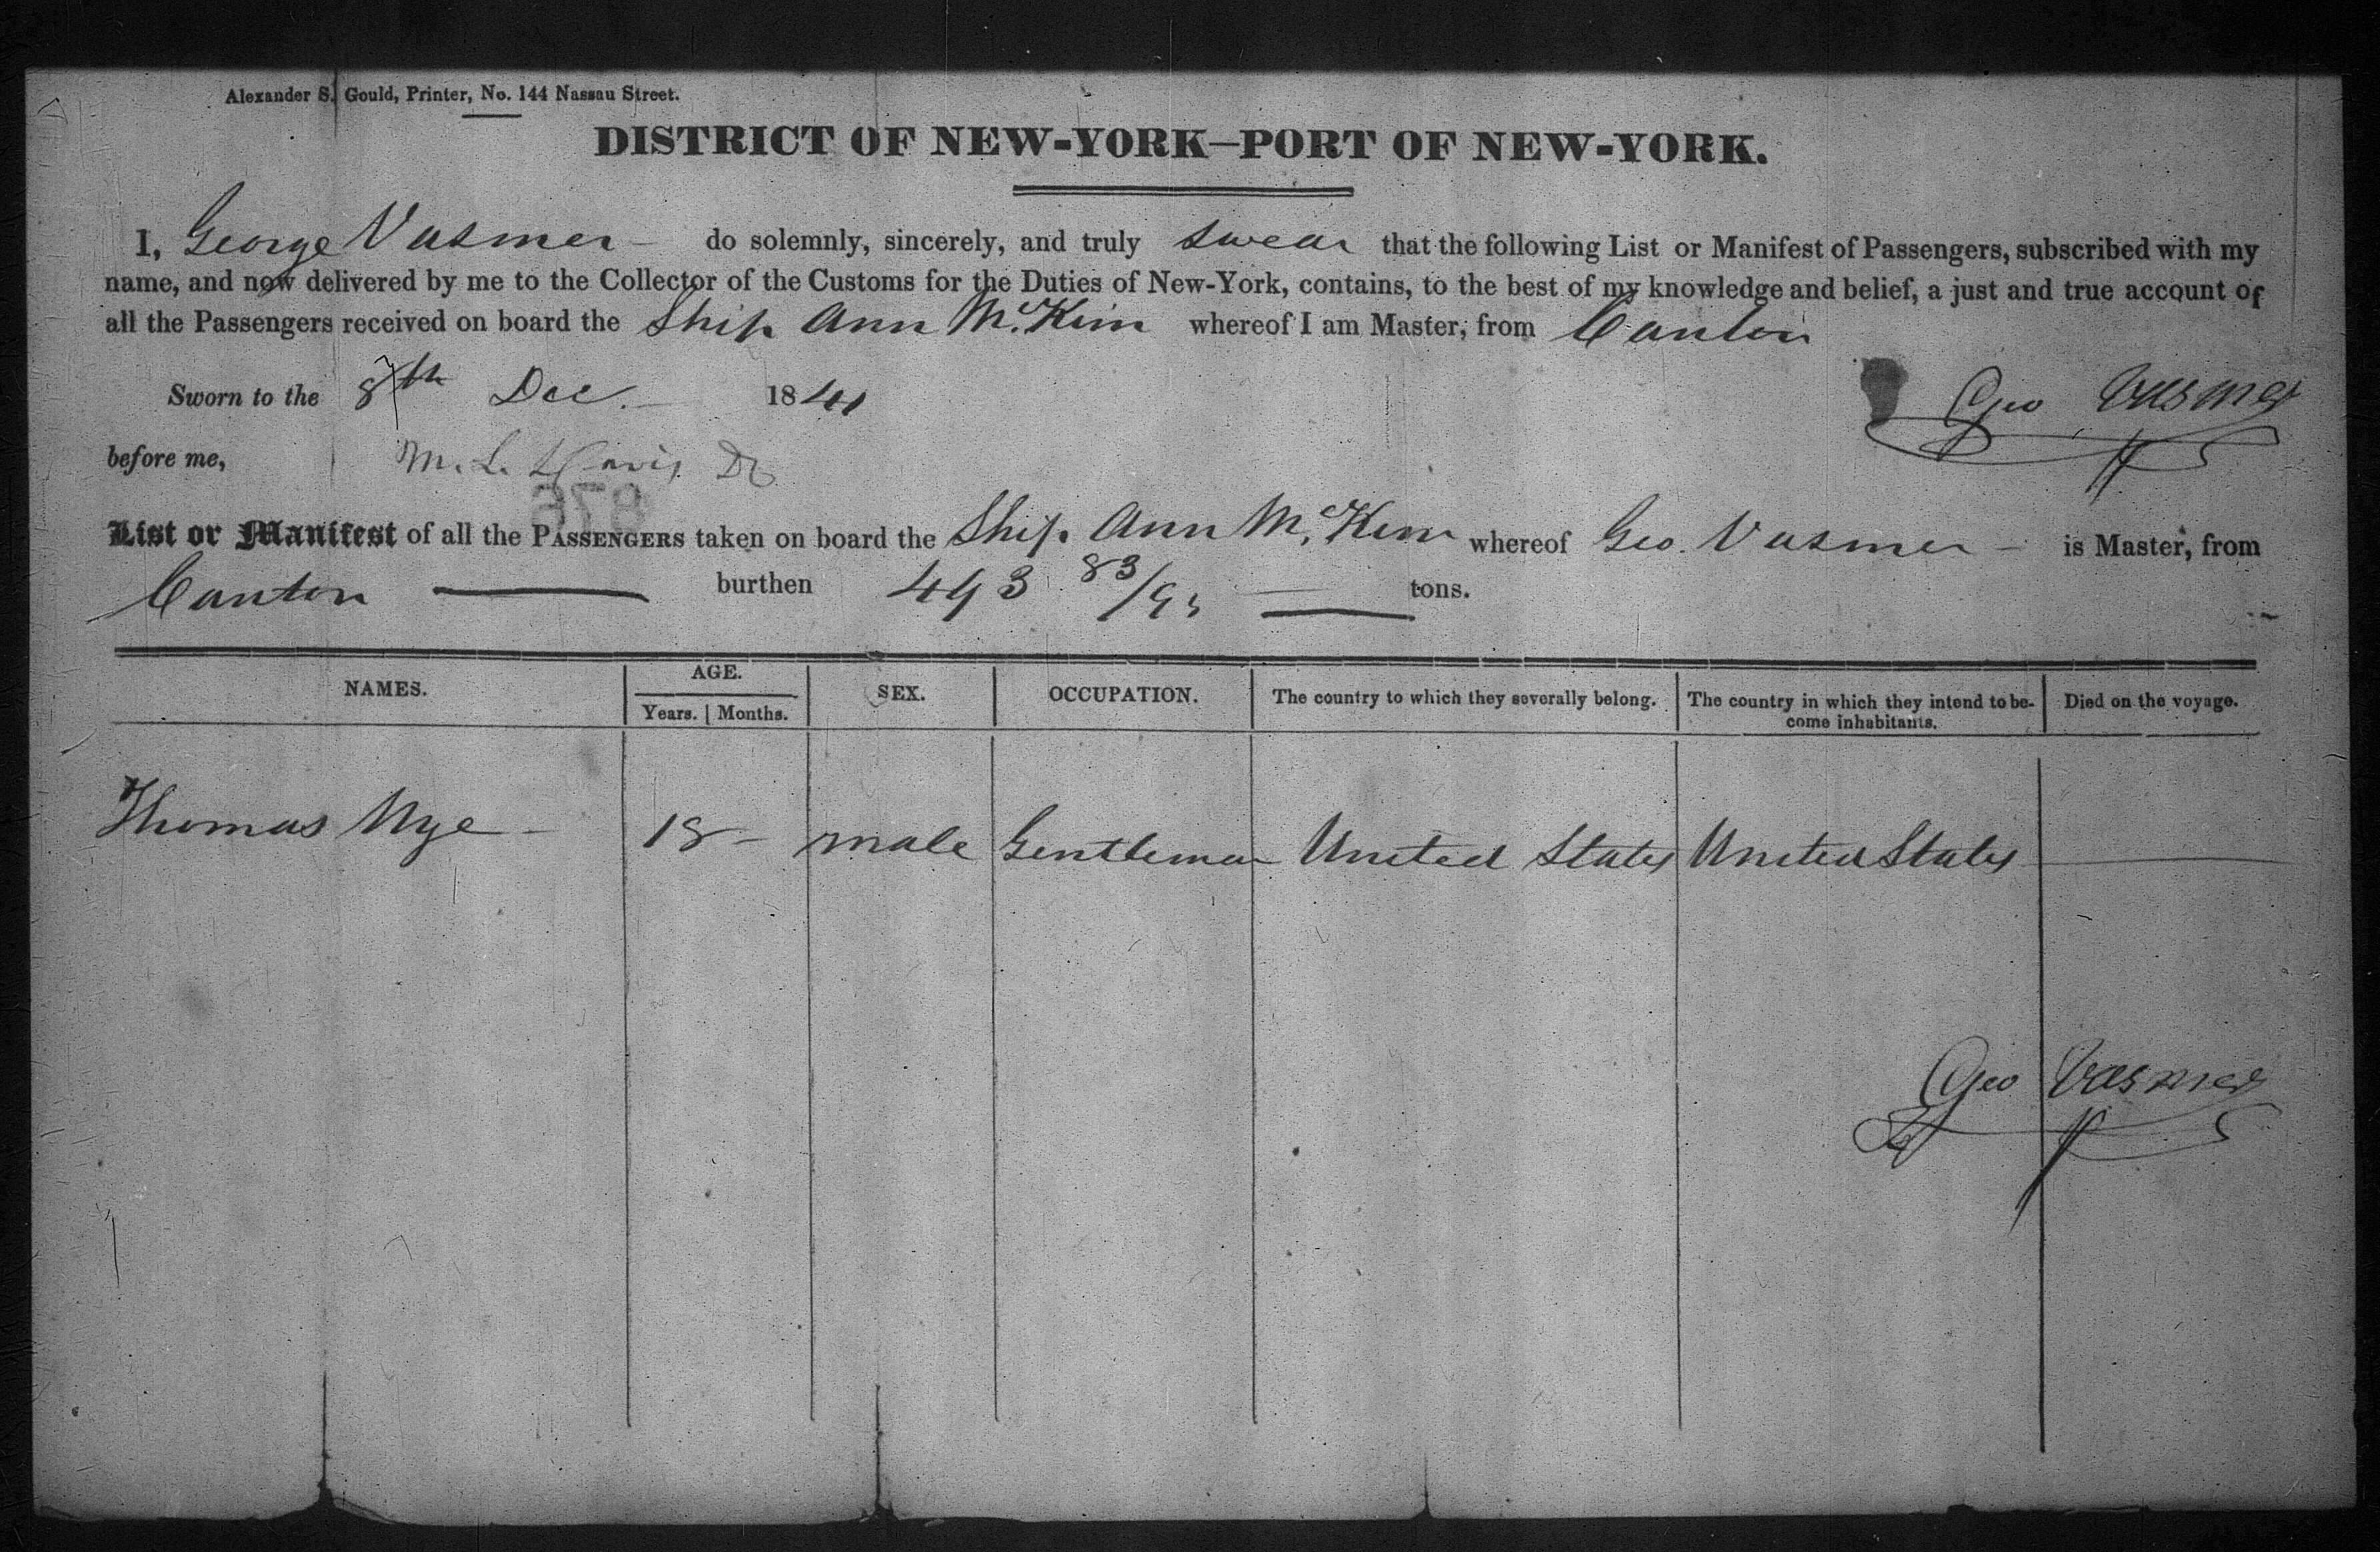 Alexander S. Gould, Printer, No. 144 Nassau Street.
DISTRICT OF NEW-YORK—PORT OF NEW-YORK.
I, George Vasmer do solemnly, sincerely, and truly swear that the following List or Manifest of Passengers, subscribed with my
name, and now delivered by me to the Collector of the Customs for the Duties of New-York, contains, to the best of my knowledge and belief, a just and true account of
all the Passengers received on board the Ship Ann McKim whereof I am Master, from Canton
Sworn to the 8th Dec. 1841
Geo Vasmer
before me, M. L. Davis
List or Manifest of all the PASSENGERS taken on board the Ship Ann McKim whereof Geo. Vasmer is Master, from
Canton burthen 493 83/95 tons.
NAMES. AGE. SEX. OCCUPATION. The country to which they severally belong. The country in which they intend to be- Died on the voyage.
Years. Months. come inhabitants.
Thomas Nye 18 male Gentleman United States United States
Geo Vasmer